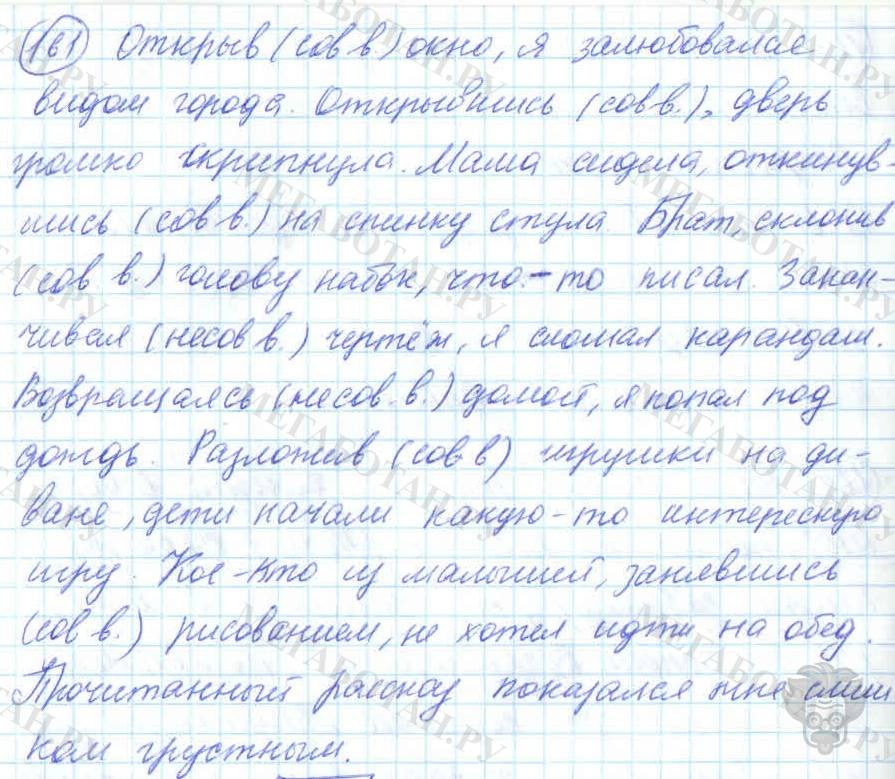 161 Открыв (сов в.) окно, я залюбовался
видом города. Открывшись (сов в.), дверь
громко скрипнула. Мама сидела, откинув-
шись (сов в.) на спинку стула. Брат, склонив
(сов в.) голову набок, что-то писал. Закан-
чивая (несов в.) чертёж, я сломал карандаш.
Возвращаясь (несов. в.) домой, я попал под
дождь. Разложив (сов в) игрушки на ди-
ване, дети начали какую-то интересную
игру. Кое-кто из малышей, занявшись
(сов в.) рисованием, не хотел идти на обед.
Прочитанный рассказ показался мне слиш
ком грустным.
МЕГАБОТАН.РУ